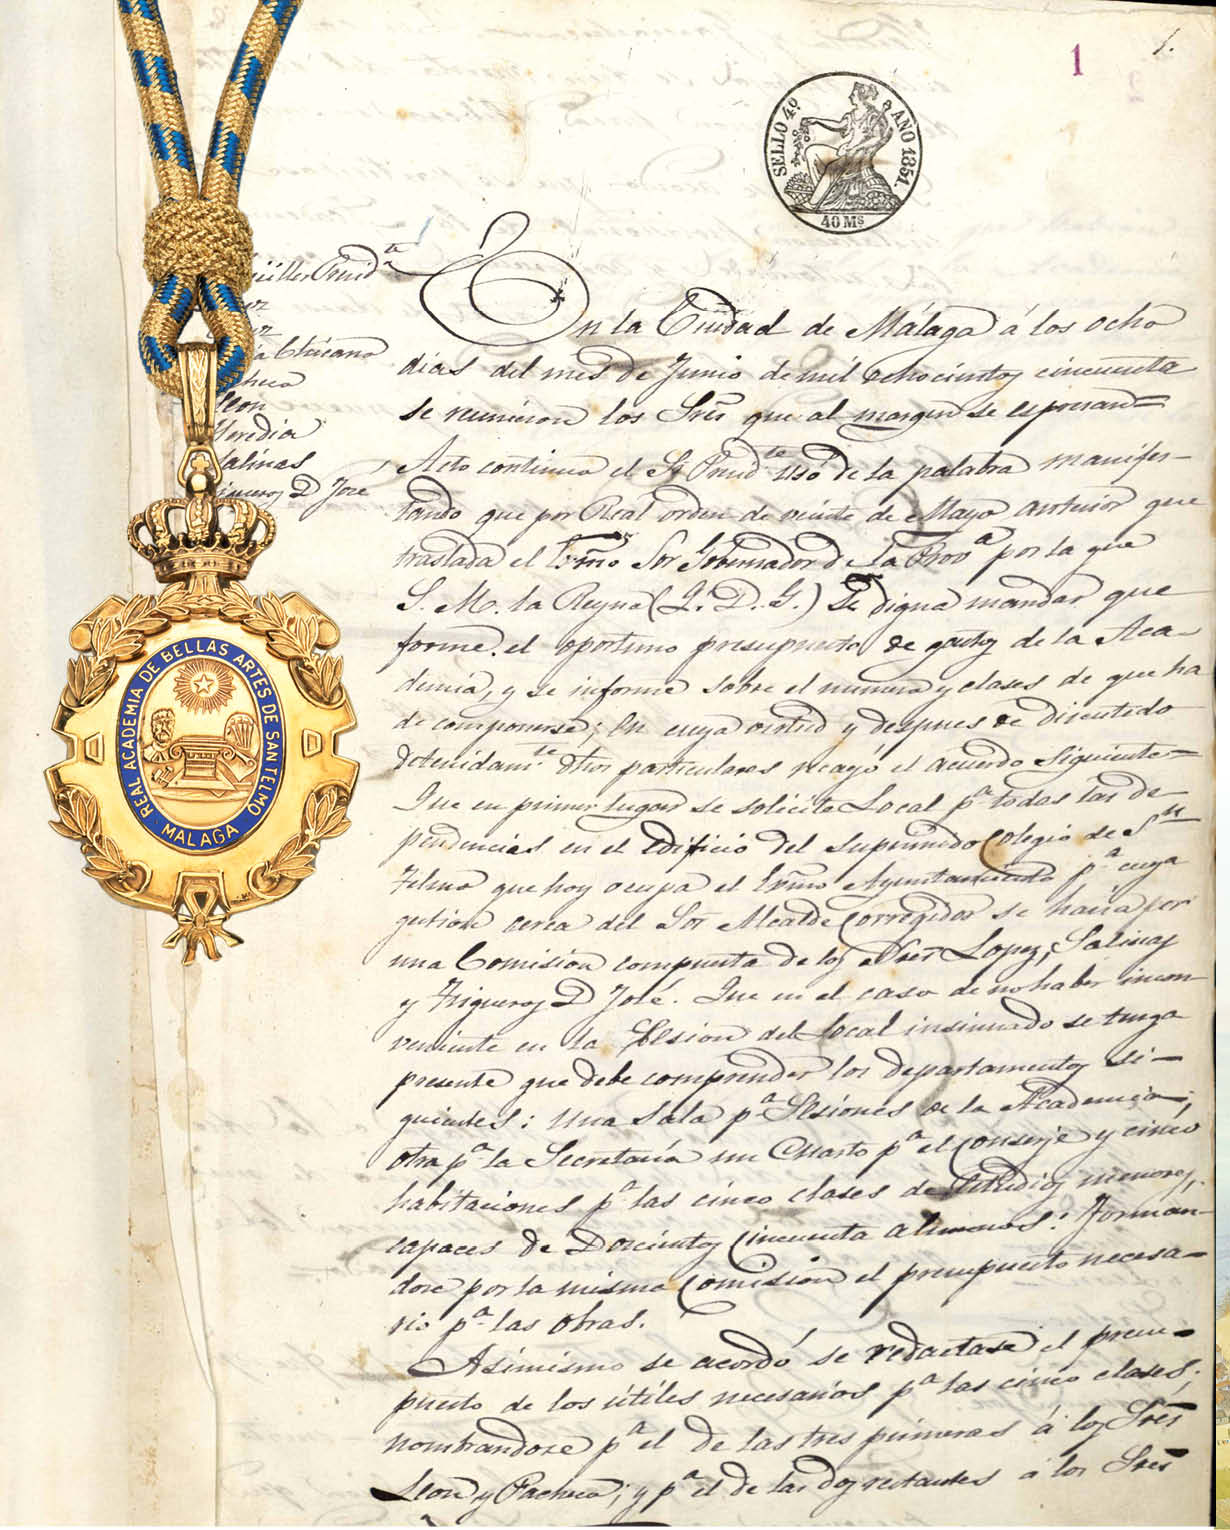 1
1.
SELLO 4º AÑO 1851.
40 Ms
REAL ACADEMIA DE BELLAS ARTES DE SAN TELMO
MALAGA
Chicano
checo
Leon
Heredia
Salinas
D Jose
En la Ciudad de Málaga á los ocho
dias del mes de Junio de mil ochocientos cincuenta
se reunieron los Sres que al margen se espresan=
Acto continuo el Sr Presidte usó de la palabra manifes-
tando que por Real orden de veinte de Mayo anterior que
traslada el Excmo Sor Gobernador de la Prova por la que
S. M. la Reyna (Q. D. G.) Se digna mandar que
forme el oportuno presupuesto de gastos de la Aca-
demia, y se informe sobre el numero y clases de que ha
de componerse; En cuya virtud y despues de discutido
detenidamte otros particulares recayó el acuerdo siguiente=
Que en primer lugar se solicite Local pa todas las de-
pendencias en el Edificio del suprimido Colegio de Sn
Telmo que hoy ocupa el Excmo Ayuntamiento pa cuya
gestion cerca del Sor Alcalde Corregidor se haria por
una Comision compuesta de los Sres Lopez, Salinas
y Trigueros D José. Que en el caso de no haber incon-
veniente en la Cesion del Local insinuado se tenga
presente que debe comprender los departamentos si-
guientes: una sala pa Sesiones de la Academia;
otra pa la Secretaría un Cuarto pa el Conserje y cinco
habitaciones pa las cinco clases de Estudios menores,
capaces de Doscientos Cincuenta alumnos: Forman-
dose por la misma Comision el presupuesto necesa-
rio pa las obras.
Asimismo se acordó se redactase el presu-
puesto de los útiles necesarios pa las cinco clases,
nombrandose pa el de las tres primeras á los Sres
Leon y Pacheco; y pa el de las dos restantes á los Sres